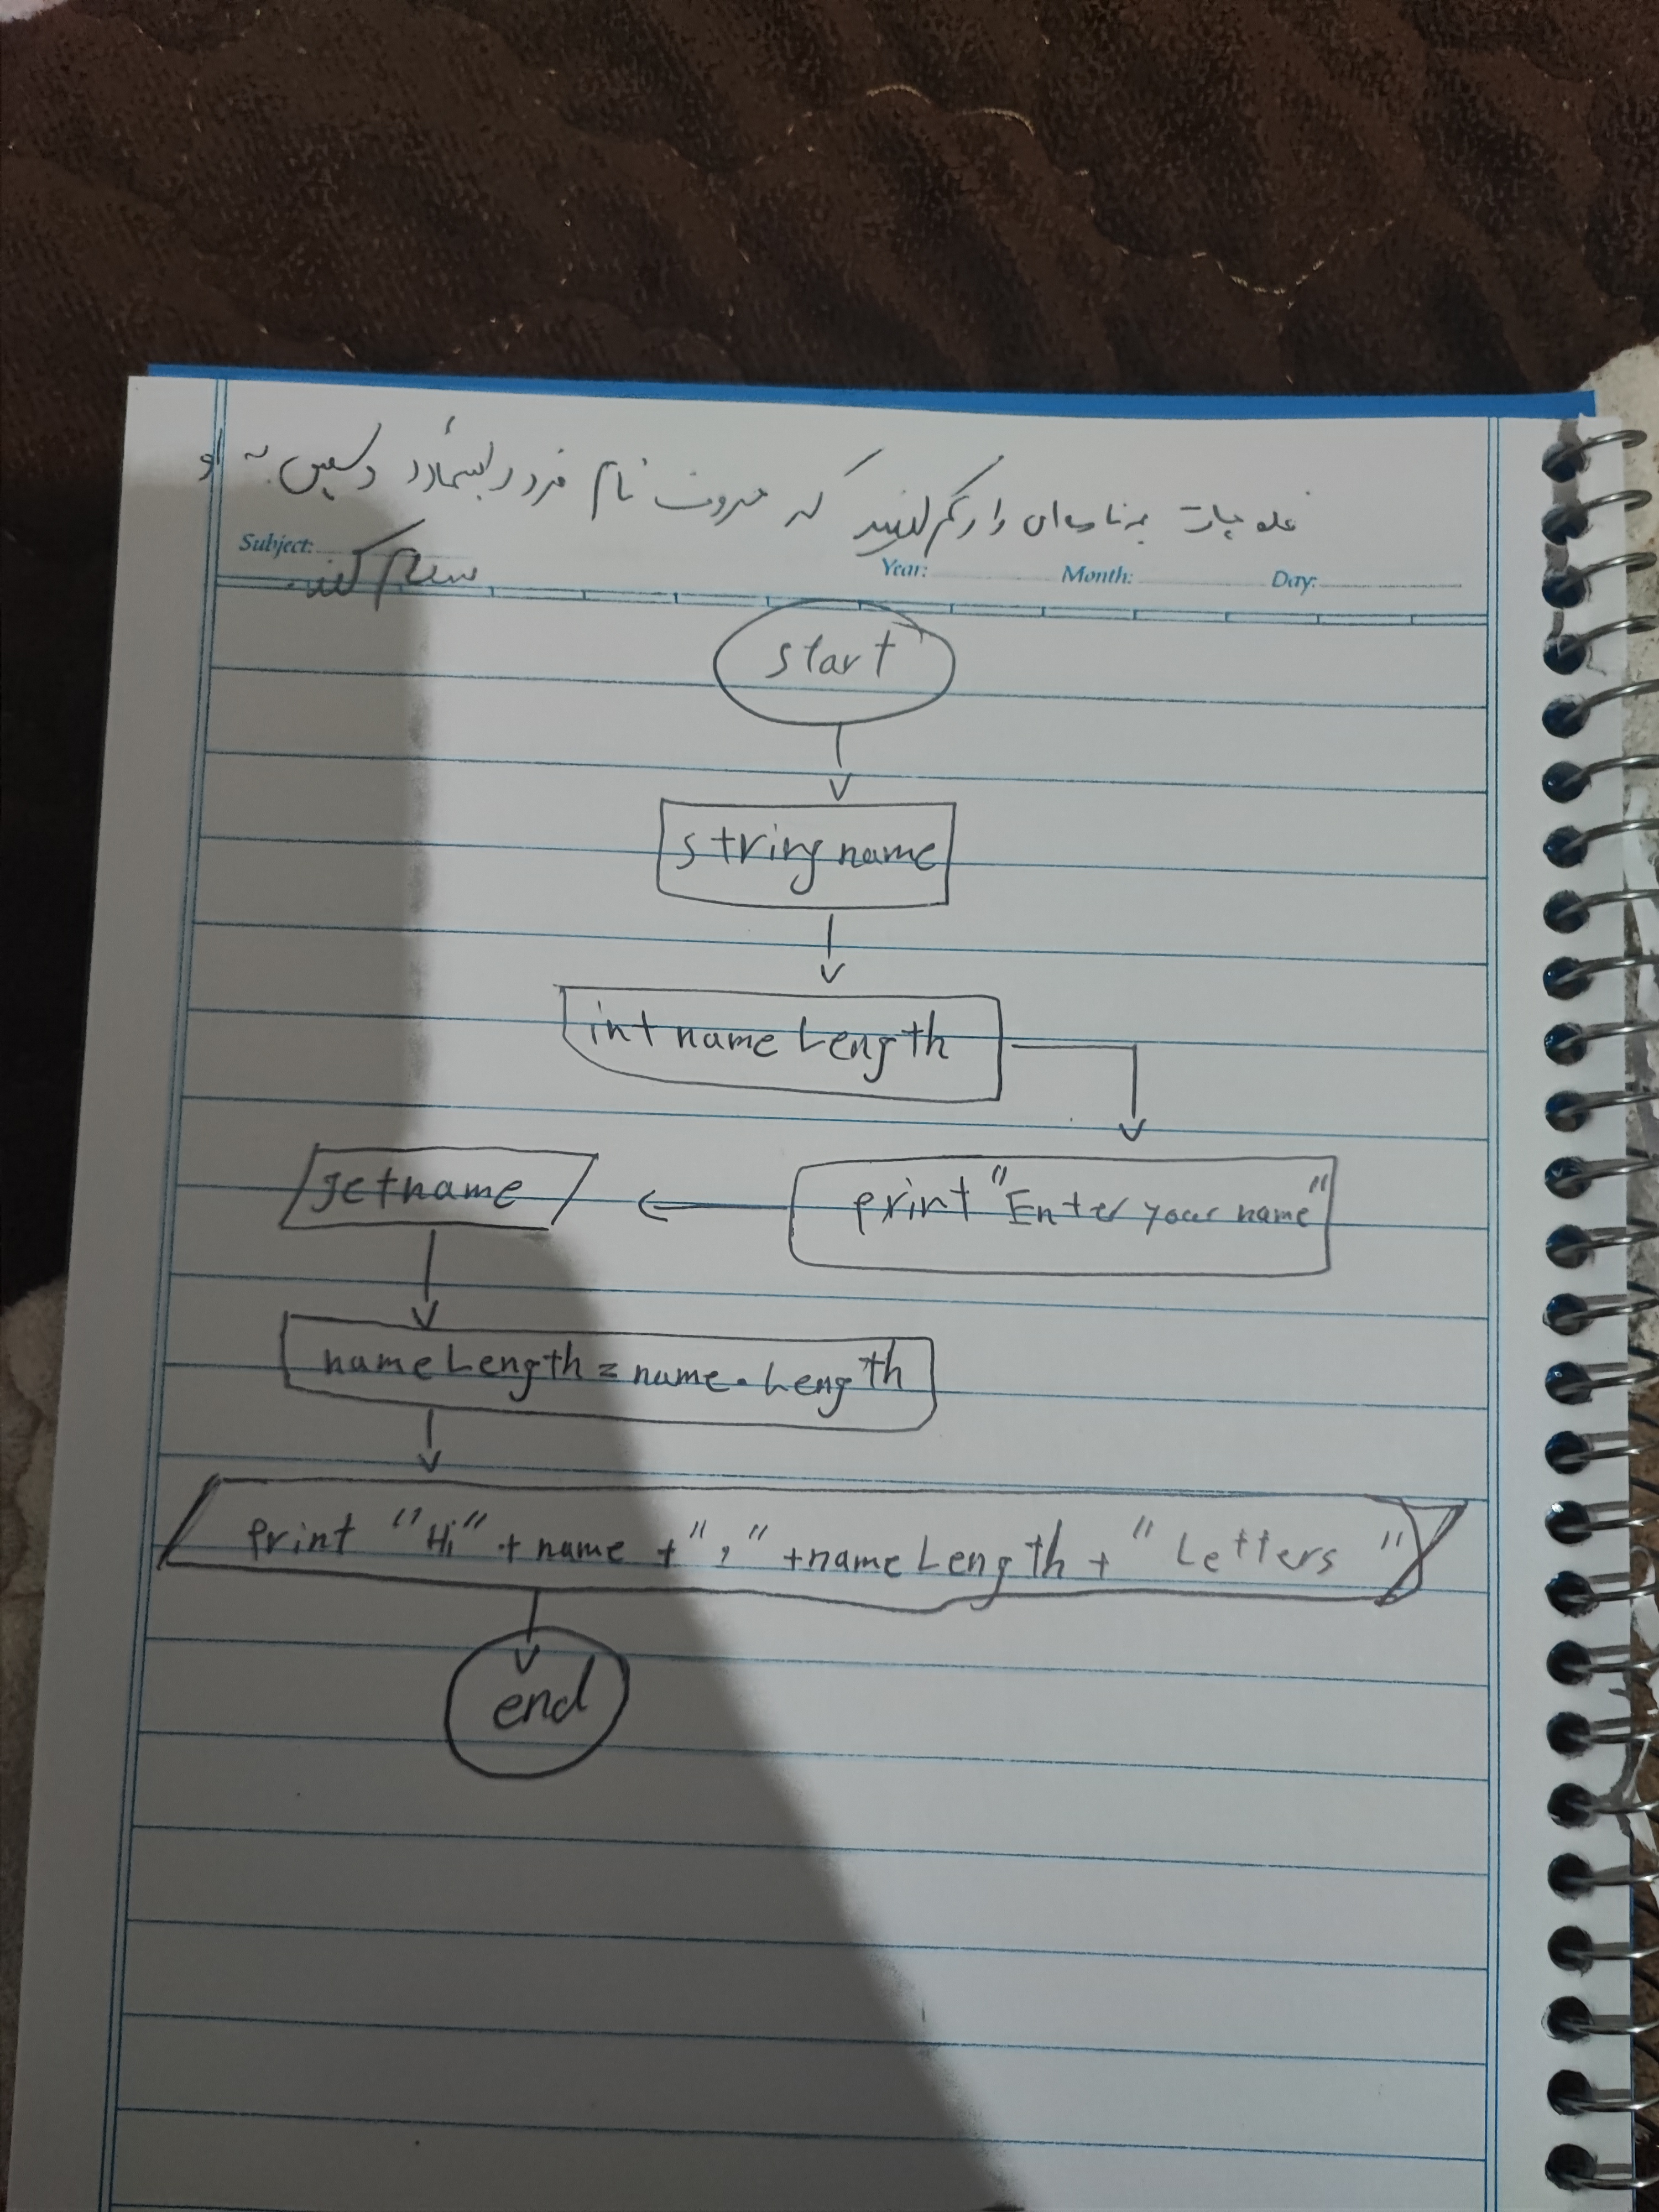 فلوچارت برنامه‌ای را رسم کنید که حروف نام فرد را بشمارد و سپس به او
سلام کند.
Subject:
Year: Month: Day:
start
string name
int name Length
print "Enter your name"
get name
name Length = name.Length
print "Hi" + name + "," + name Length + "Letters"
end